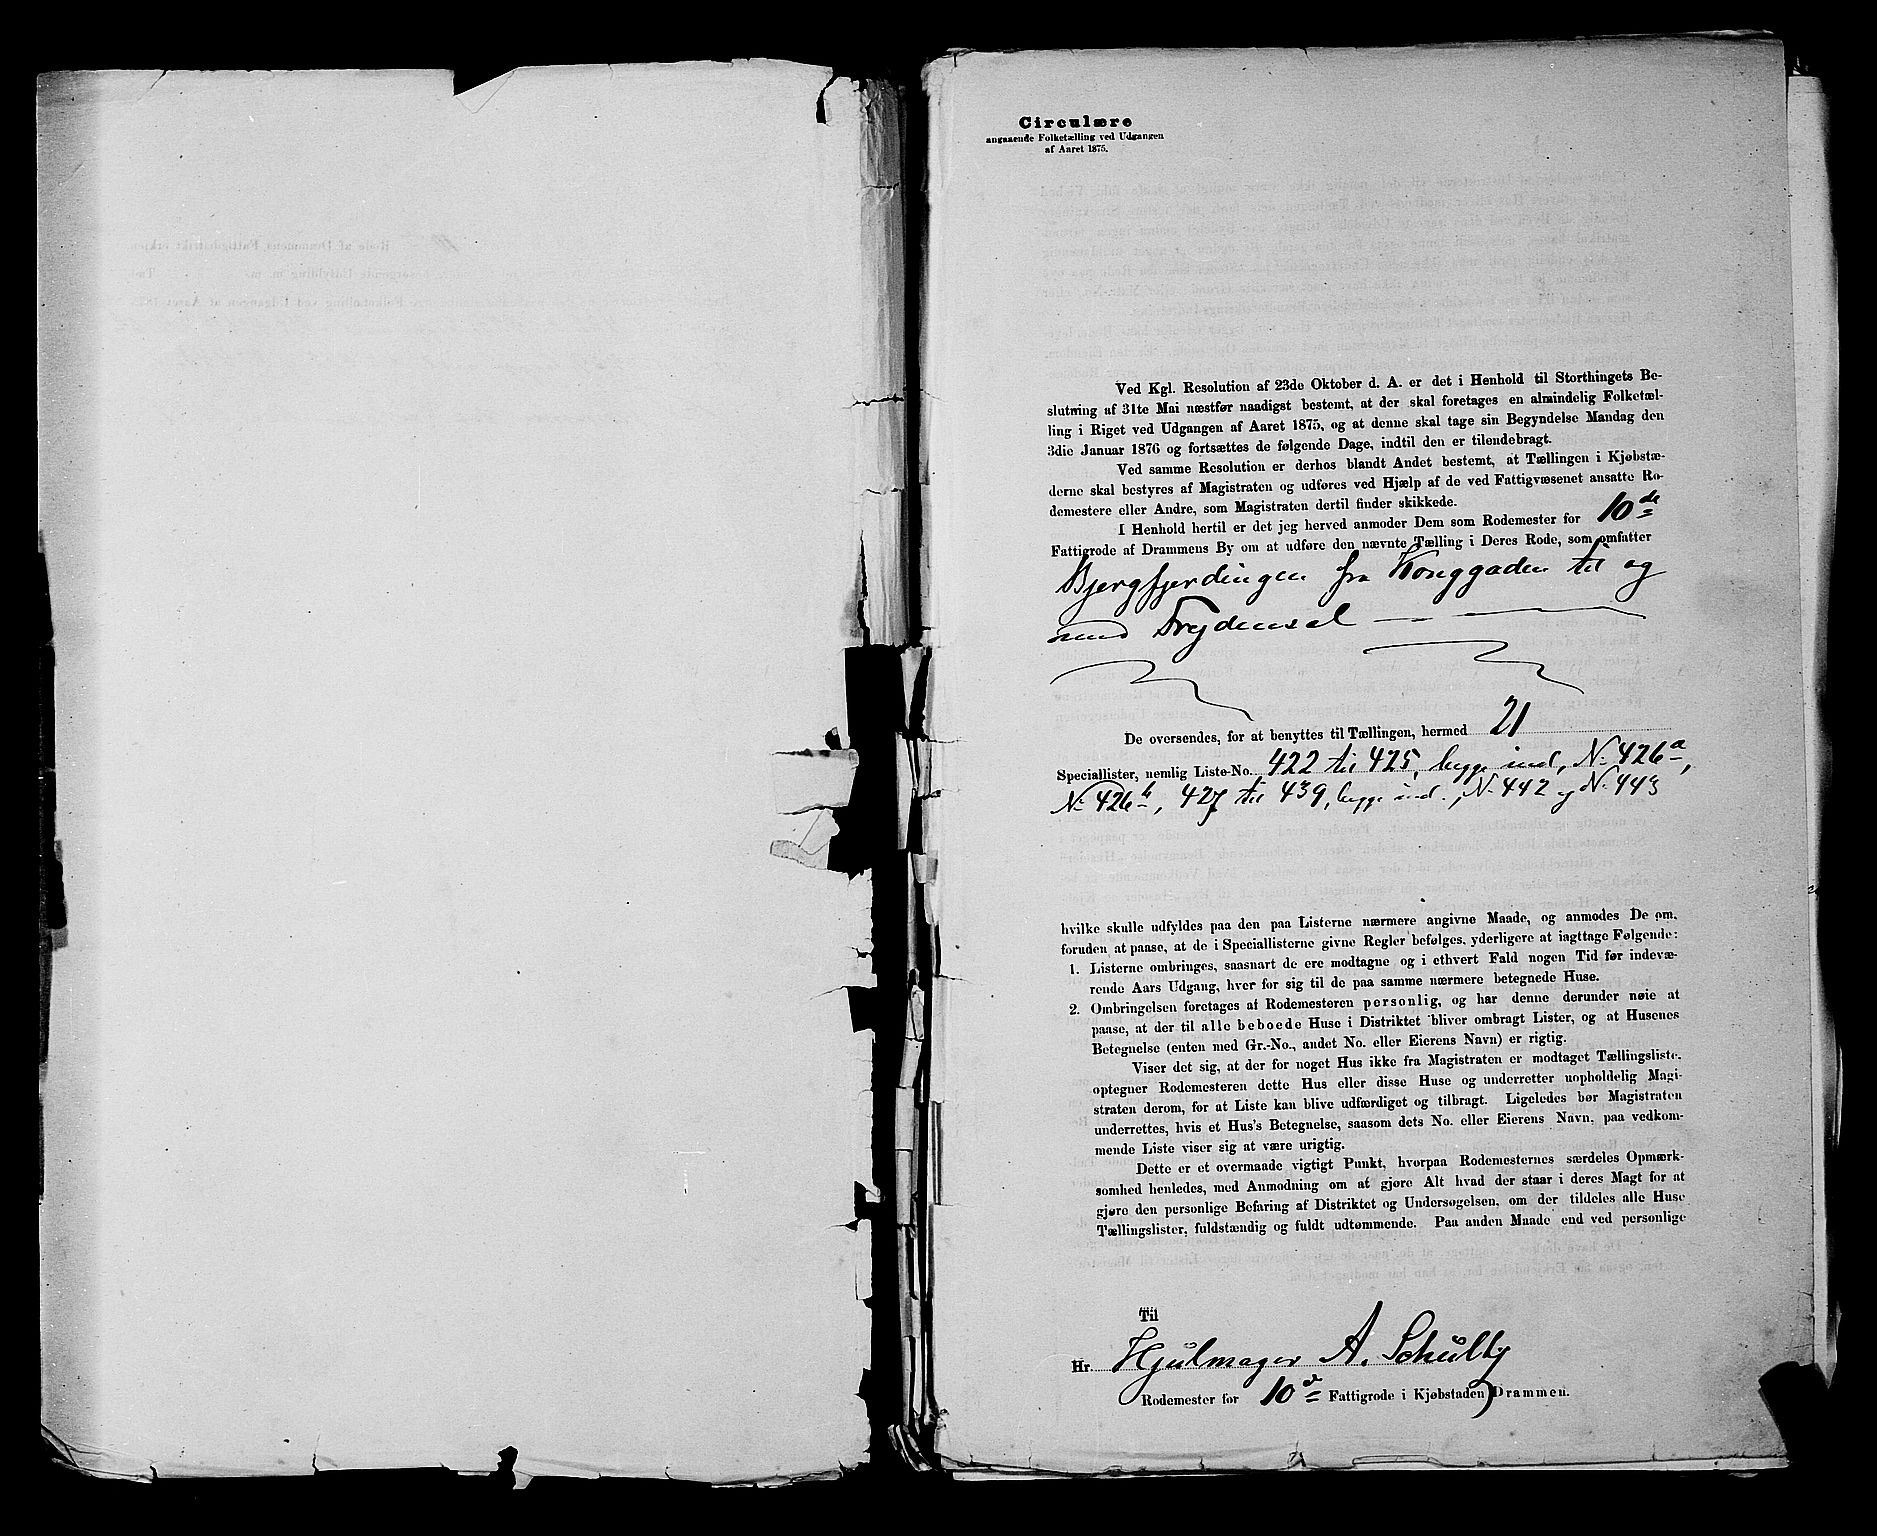 Circulære
angaaende Folketælling ved Udgangen
af Aaret 1875.
Ved Kgl. Resolution af 23de Oktober d. A. er det i Henhold til Storthingets Be-
slutning af 31te Mai næstfør naadigst bestemt, at der skal foretages en almindelig Folketæl-
ling i Riget ved Udgangen af Aaret 1875, og at denne skal tage sin Begyndelse Mandag den
3die Januar 1876 og fortsættes de følgende Dage, indtil den er tilendebragt.
Ved samme Resolution er derhos blandt Andet bestemt, at Tællingen i Kjøbstæ-
derne skal bestyres af Magistraten og udføres ved Hjælp af de ved Fattigvæsenet ansatte Ro-
demestere eller Andre, som Magistraten dertil finder skikkede.
I Henhold hertil er det jeg herved anmoder Dem som Rodemester for 10de
Fattigrode af Drammens By om at udføre den nævnte Tælling i Deres Rode, som omfatter
Bjergfjerdingen fra Konggaden til og
med Frydensal
De oversendes, for at benyttes til Tællingen, hermed 21
Speciallister, nemlig Liste-No. 422 til 425, begge incl, No 426a,
No 426b, 427 til 439, begge incl., No 442 og No 443
hvilke skulle udfyldes paa den paa Listerne nærmere angivne Maade, og anmodes De om,
foruden at paase, at de i Speciallisterne givne Regler befølges, yderligere at iagttage Følgende:
1. Listerne ombringes, saasnart de ere modtagne og i ethvert Fald nogen Tid før indevæ-
rende Aars Udgang, hver for sig til de paa samme nærmere betegnede Huse.
2. Ombringelsen foretages af Rodemesteren personlig, og har denne derunder nøie at
paase, at der til alle beboede Huse i Distriktet bliver ombragt Lister, og at Husenes
Betegnelse (enten med Gr.-No., andet No. eller Eierens Navn) er rigtig.
Viser det sig, at der for noget Hus ikke fra Magistraten er modtaget Tællingsliste,
optegner Rodemesteren dette Hus eller disse Huse og underretter uopholdelig Magi-
straten derom, for at Liste kan blive udfærdiget og tilbragt. Ligeledes bør Magistraten
underrettes, hvis et Hus's Betegnelse, saasom dets No. eller Eierens Navn, paa vedkom-
mende Liste viser sig at være urigtig.
Dette er et overmaade vigtigt Punkt, hvorpaa Rodemesternes særdeles Opmærk-
somhed henledes, med Anmodning om at gjøre Alt hvad der staar i deres Magt for at
gjøre den personlige Befaring af Distriktet og Undersøgelsen, om der tildeles alle Huse
Tællingslister, fuldstændig og fuldt udtømmende. Paa anden Maade end ved personlige
Til
Hr. Hjulmager A. Schulby
Rodemester for 10de Fattigrode i Kjøbstaden Drammen.